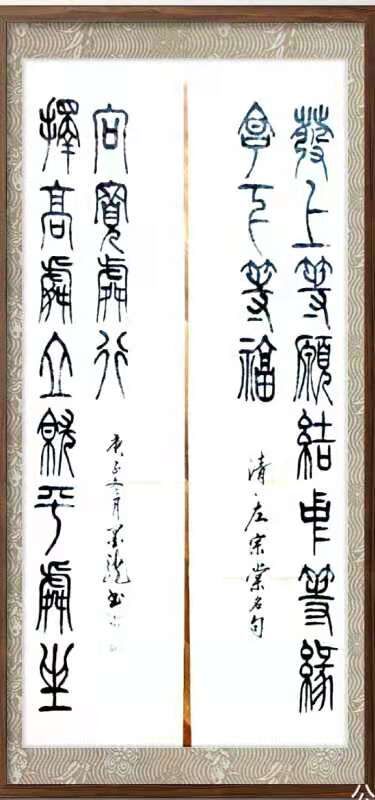 發上等願結中等緣
享下等福
清·左宗棠名句
擇高處立就平處坐
向寬處行
庚子冬月 書
公